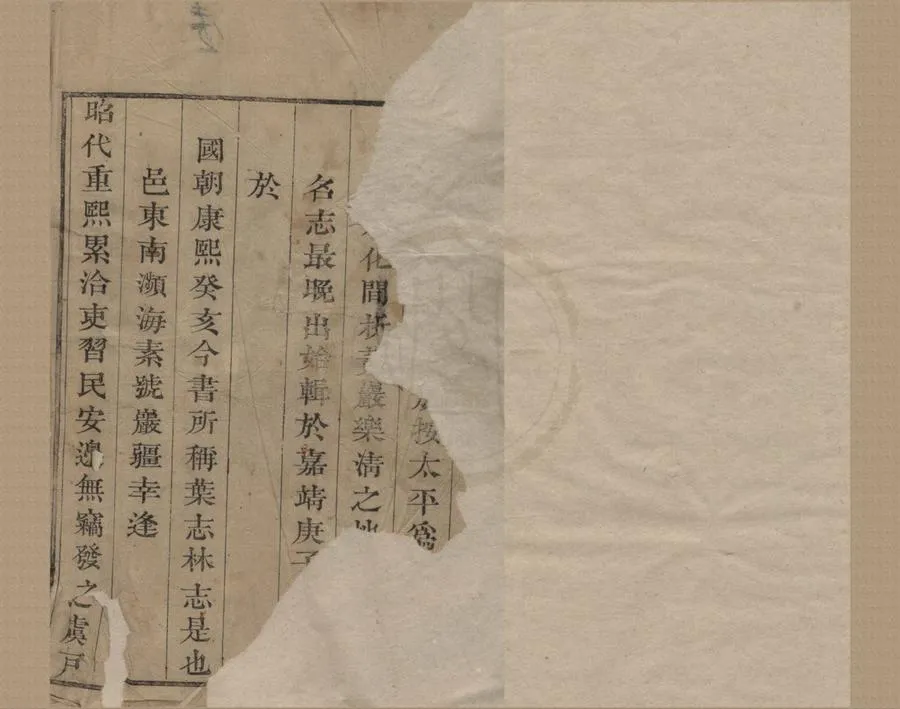 按太平爲
化間析黃巖樂清之地
名志最晩出始輯於嘉靖庚子
於
國朝康熙癸亥今書所稱葉志林志是也
邑東南瀕海素號巖疆幸逢
昭代重熙累洽吏習民安邊無竊發之虞戸